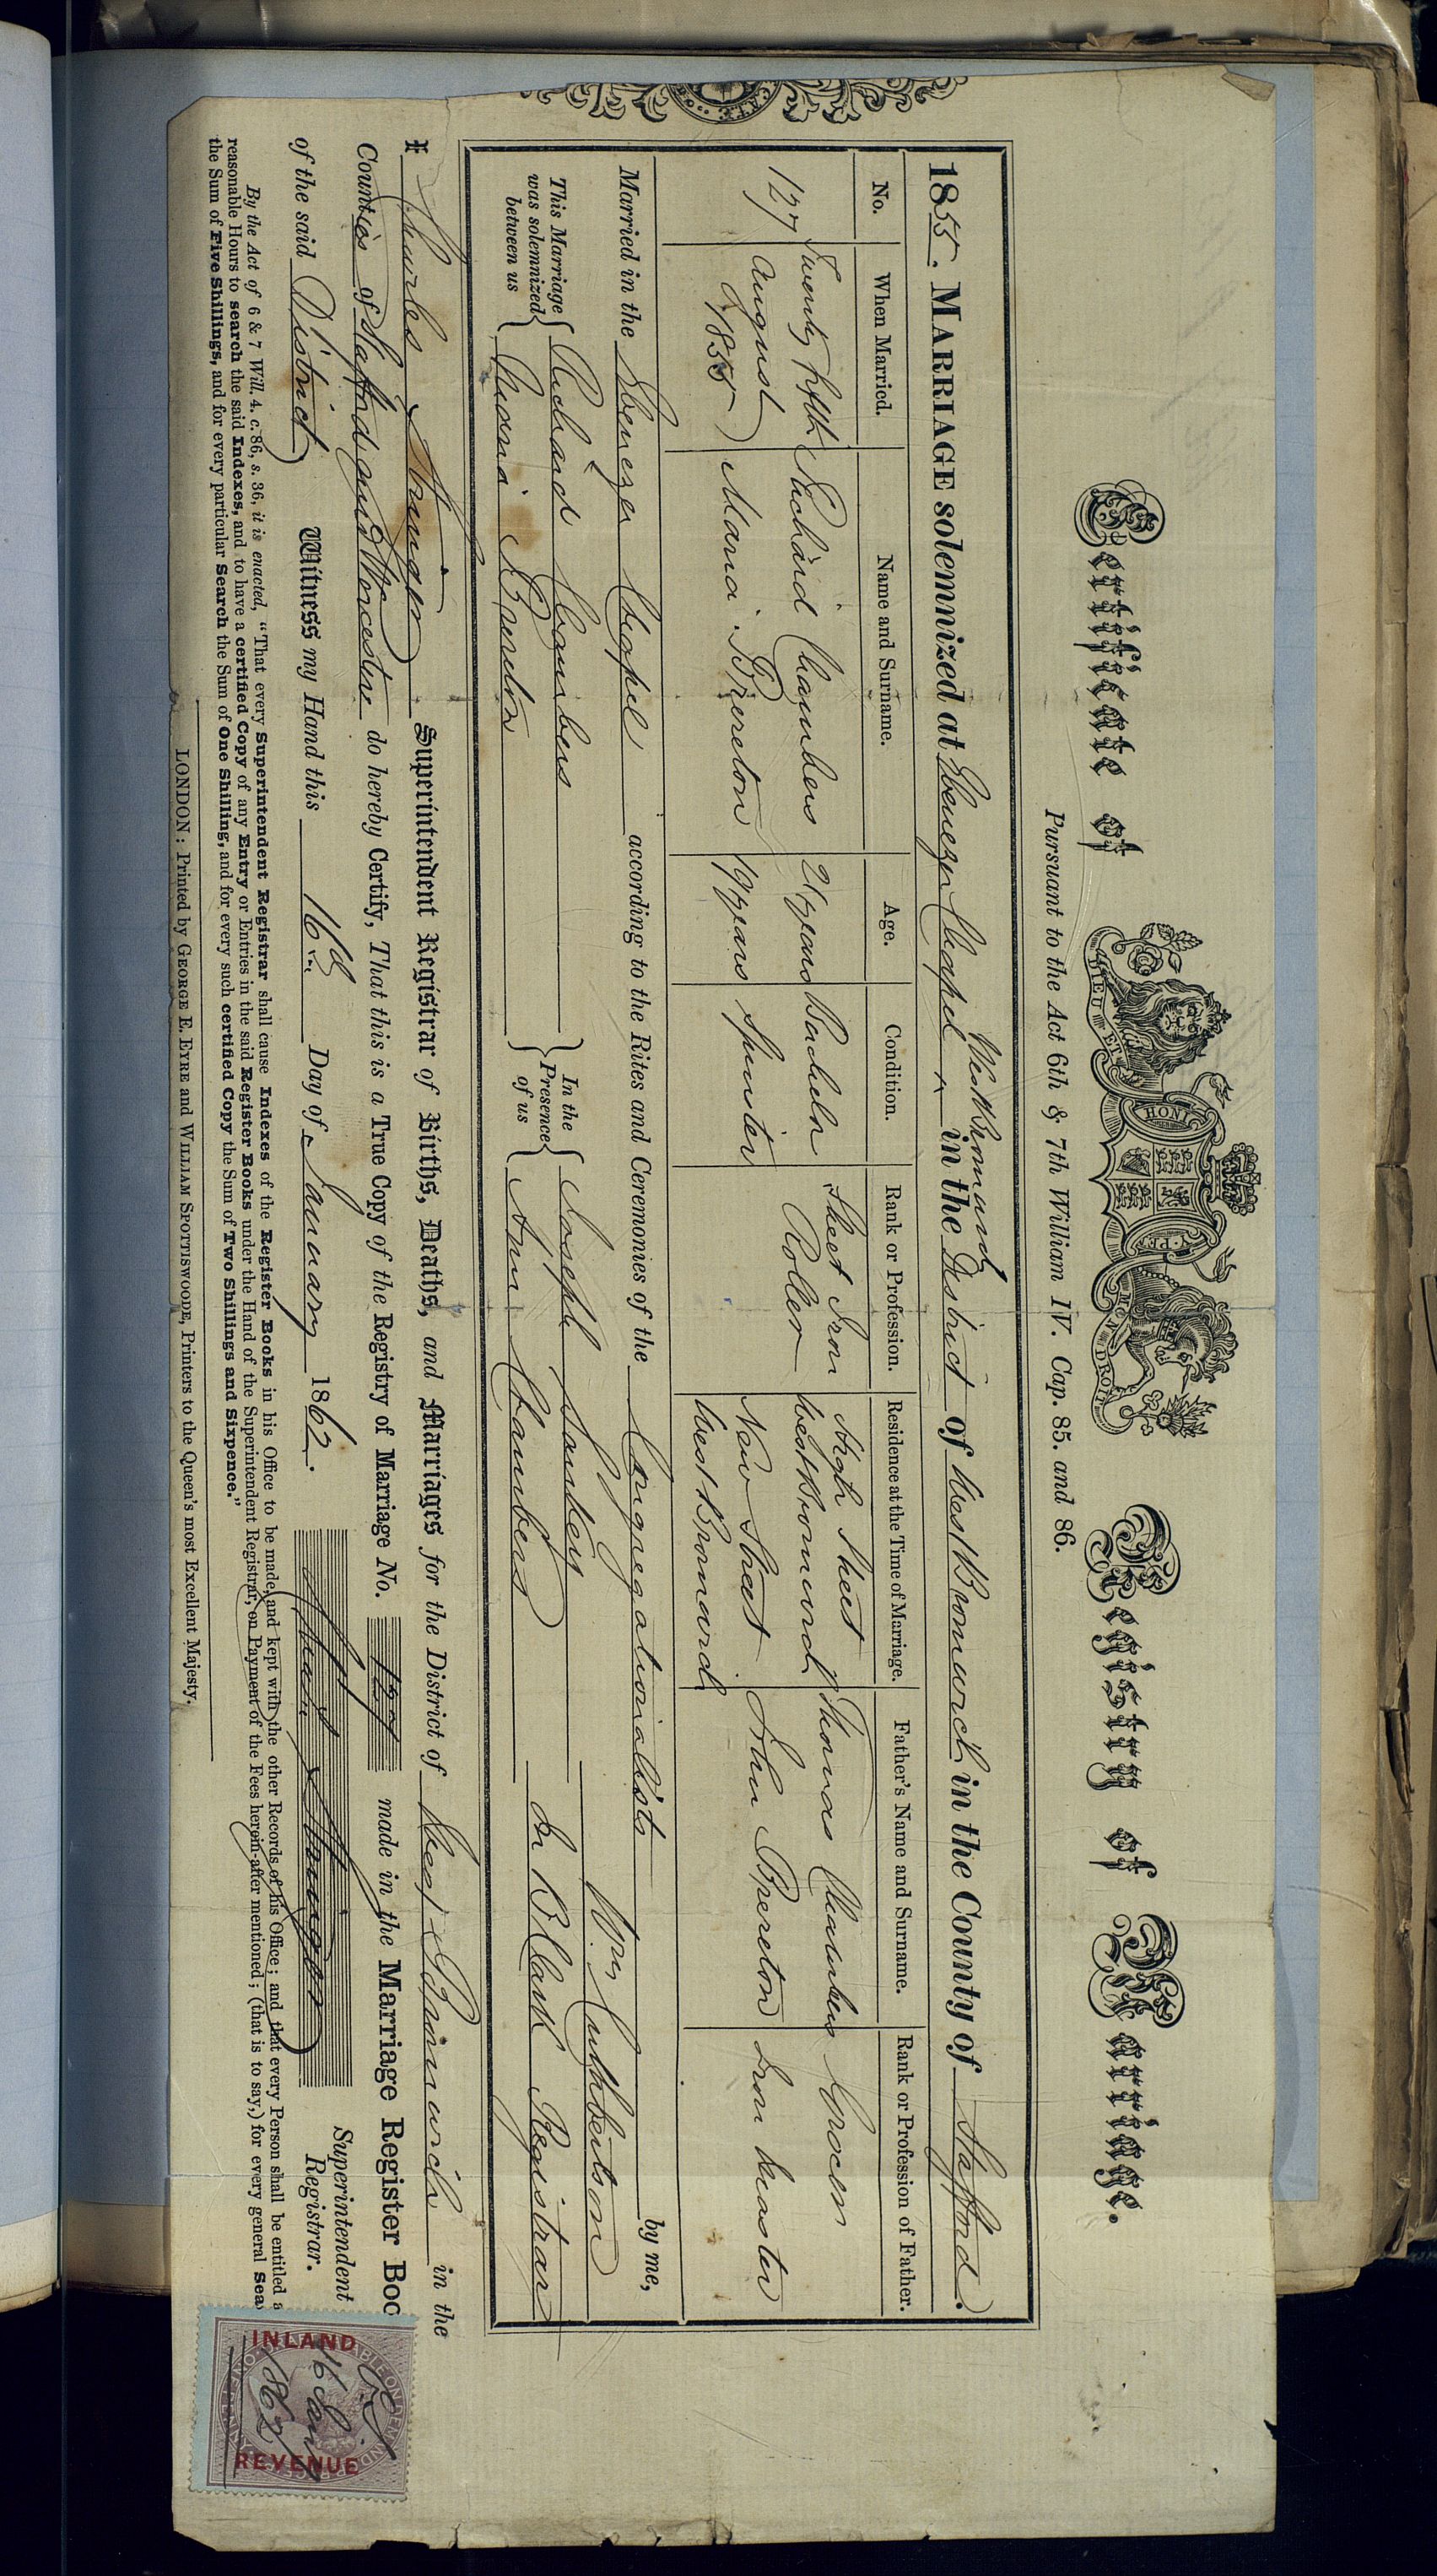 Certificate of Registry of Marriage.
DIEU ET MON DROIT
HONI
Pursuant to the Act 6th & 7th William IV. Cap. 85. and 86.
West Bromwich
1855. MARRIAGE solemnized at Ebenezer Chapel ^ in the District of West Bromwich in the County of Stafford.
No. When Married. Name and Surname. Age. Condition. Rank or Profession. Residence at the Time of Marriage. Father's Name and Surname. Rank or Profession of Father.
127 Twenty fifth August 1855 Richard Chambers 21 years Bachelor Sheet Iron Roller High Street West Bromwich Thomas Chambers Grocer
Maria Brereton 19 years Spinster New Street West Bromwich John Brereton Iron Master
Married in the Ebenezer Chapel according to the Rites and Ceremonies of the Congregationalists by me,
Wm Cuthbertson
This Marriage was solemnized between us { Richard Chambers } In the Presence of us { Joseph Sankey
Maria Brereton Ann Chambers
In B Clark Registrar
I Charles Superintendent Registrar of Births, Deaths, and Marriages for the District of West Bromwich in the
Counties of Stafford and Worcester do hereby Certify, That this is a True Copy of the Registry of Marriage No. 127 made in the Marriage Register Boo
of the said District Witness my Hand this 16th Day of January 1862.
Superintendent
Registrar.
By the Act of 6 & 7 Will. 4. c. 86, s. 36, it is enacted, "That every Superintendent Registrar shall cause Indexes of the Register Books in his Office to be made, and kept with the other Records of his Office; and that every Person shall be entitled a
reasonable Hours to search the said Indexes, and to have a certified Copy of any Entry or Entries in the said Register Books under the Hand of the Superintendent Registrar, on Payment of the Fees herein-after mentioned; (that is to say,) for every general Sea
the Sum of Five Shillings, and for every particular Search the Sum of One Shilling, and for every such certified Copy the Sum of Two Shillings and Sixpence."
LONDON: Printed by GEORGE E. EYRE and WILLIAM SPOTTISWOODE, Printers to the Queen's most Excellent Majesty.
INLAND
16 Jany
1862
REVENUE